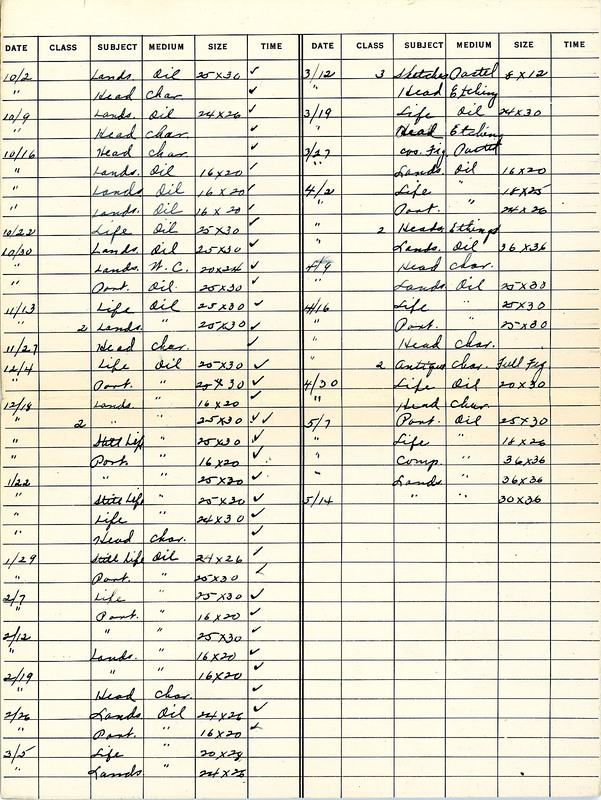 DATE CLASS SUBJECT MEDIUM SIZE TIME
10/2 Lands. Oil 25x30 ✓
" Head Char. ✓
10/9 Lands. Oil 24x26 ✓
" Head Char. ✓
10/16 Head Char. ✓
" Lands. Oil 16x20 ✓
" Lands Oil 16x20 ✓
" Lands. Oil 16x20 ✓
10/22 Life Oil 25x30 ✓
10/30 Lands. Oil 25x30 ✓
" Lands. W.C. 20x24 ✓
" Port. Oil. 25x30 ✓
11/13 Life Oil 25x30 ✓
" 2 Lands. " 25x30 ✓
11/27 Head Char. ✓
12/4 Life Oil 25x30 ✓
" Port. " 25x30 ✓
12/18 Lands. " 16x20 ✓
" 2 " " 25x30 ✓✓
" Still Life " 25x30 ✓
" Port. " 16x20 ✓
1/22 " " 25x30 ✓
" Still Life " 25x30 ✓
" Life " 24x30 ✓
" Head Char. ✓
1/29 Still Life Oil 24x26 ✓
" Port. " 25x30 ✓
2/7 Life " 25x30 ✓
" Port. " 16x20 ✓
2/12 " " 25x30 ✓
" Lands. " 16x20 ✓
2/19 " " 16x20 ✓
" Head Char. ✓
2/26 Lands Oil 24x26 ✓
" Port. " 16x20 ✓
3/5 Life " 20x28
" Lands " 24x26
DATE CLASS SUBJECT MEDIUM SIZE TIME
3/12 3 Sketches Pastel 8x12
" Head Etching
3/19 Life Oil 24x30
" Head Etching
3/27 Cos. Fig. Pastel
" Lands. Oil 16x20
4/2 Life " 18x25
" Port. " 24x26
" 2 Heads Etchings
" Lands. Oil 36x36
4/9 Head Char.
" Lands Oil 25x30
4/16 Life " 25x30
" Port. " 25x30
" Head Char.
" 2 Antique Char. Full Fig
4/30 Life Oil 20x30
" Head Char.
5/7 Port. Oil 25x30
" Life " 18x26
" Comp. " 36x36
" Lands " 36x36
5/14 " " 30x36